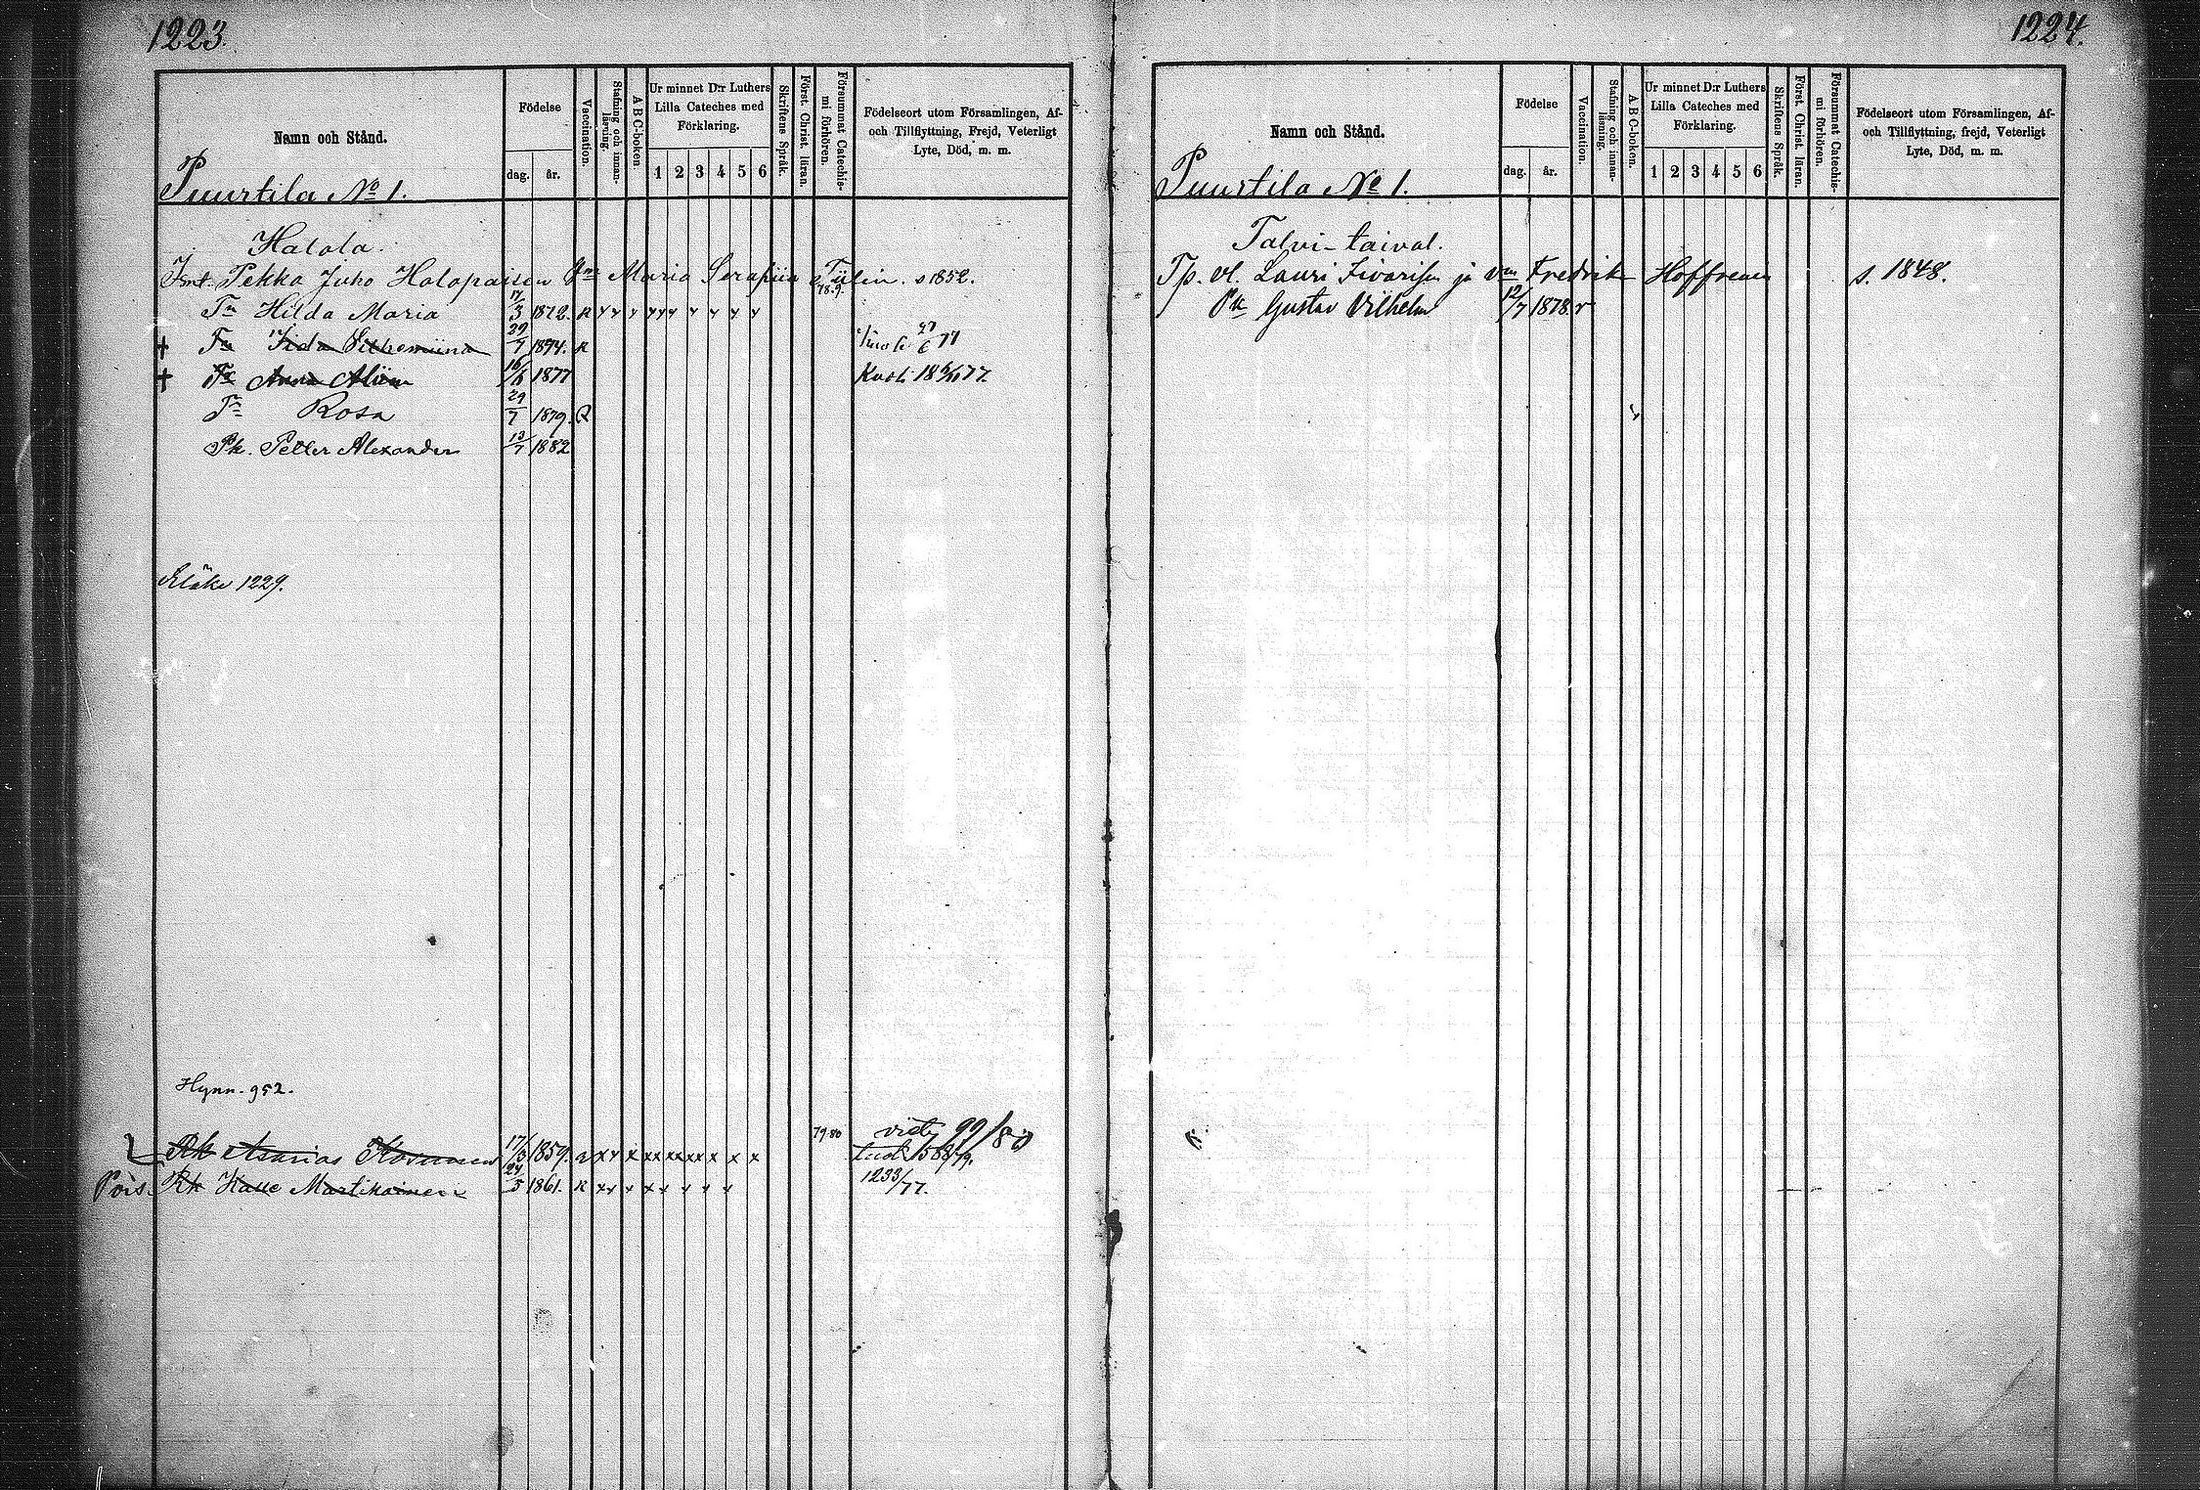 1223.
Namn och Stånd.
Födelse
dag. år.
Vaccination.
Stafning och innanläsning.
A B C-boken.
Ur minnet D:r Luthers Lilla Cateches med Förklaring.
1 2 3 4 5 6
Skriftens Språk.
Först. Christ. läran.
Försumat Catechismi förhören.
Födelseort utom Församlingen, Af- och Tillflyttning, Frejd, Veterligt Lyte, Död, m. m.
Puurtila No 1.
Halola.
Pekka Juho Holopainen Maria Serafiia s 1852.
Tr Hilda Maria 17/3 1872. R
+ Tr 29/7 1874. R
+ Tr Anna 1877
Tr Rosa 29/7 1879. R
Pk. Petter Alexander 13/7 1882
1229.
Hynn. 952.
79.80
Rk Asarias 17/3 1859. x x x x x x x x x x
Pois. Rk Martikainen 24/5 1861. R
1233/77.
1224.
Namn och Stånd.
Födelse
dag. år.
Vaccination.
Stafning och innanläsning.
A B C-boken.
Ur minnet D:r Luthers Lilla Cateches med Förklaring.
1 2 3 4 5 6
Skriftens Språk.
Först. Christ. läran.
Försumat Catechismi förhören.
Födelseort utom Församlingen, Af- och Tillflyttning, frejd, Veterligt Lyte, Död, m. m.
Puurtila No 1.
Talvi-taival.
Tp. vl. Lauri ja vm Fredrik Hoffren s. 1848.
Pk Gustav Vilhelm 12/7 1878. r